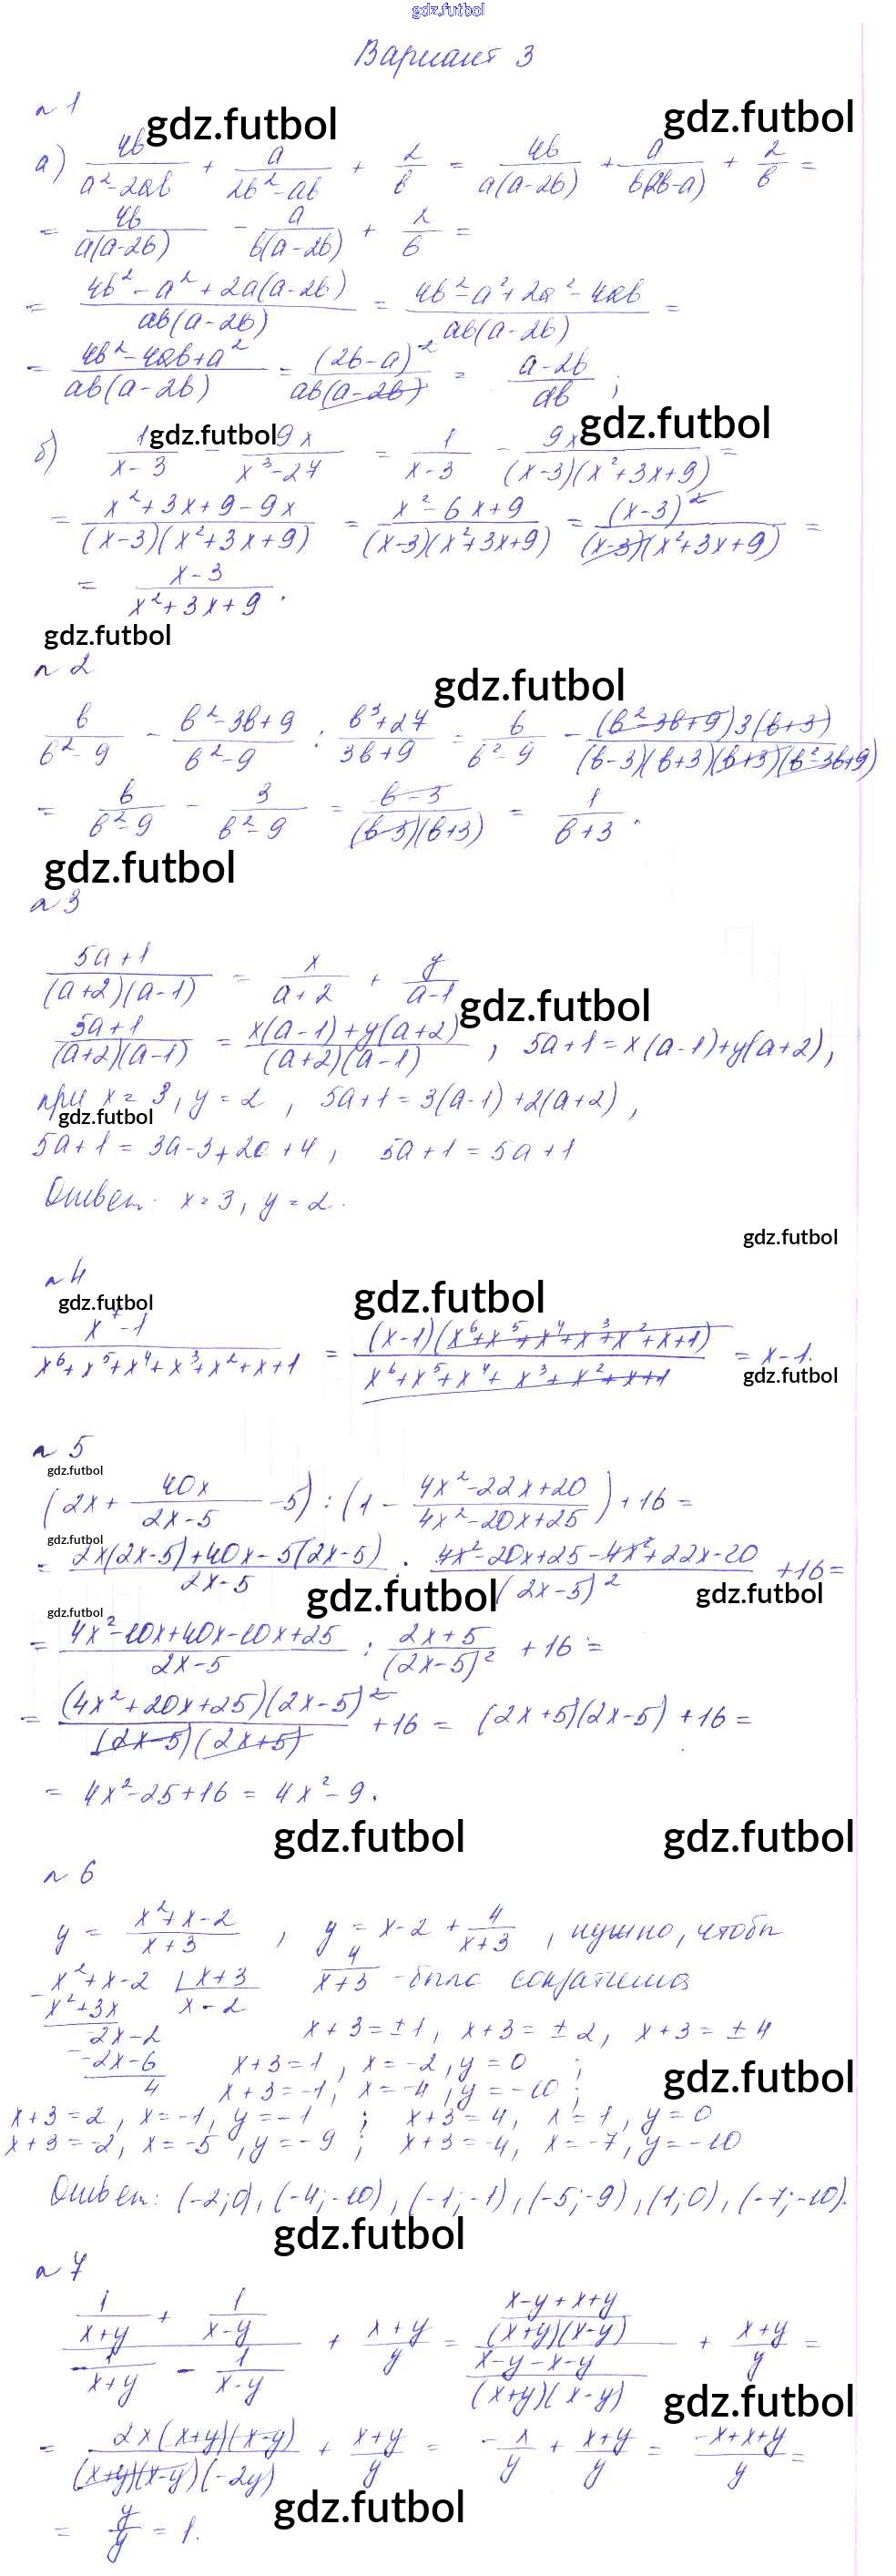 gdz.futbol
Вариант 3
n 1
gdz.futbol gdz.futbol
а) 4b/(a²-2ab) + a/(2b²-ab) + 2/b = 4b/(a(a-2b)) + a/(b(2b-a)) + 2/b =
= 4b/(a(a-2b)) - a/(b(a-2b)) + 2/b =
= (4b²-a²+2a(a-2b))/(ab(a-2b)) = (4b²-a²+2a²-4ab)/(ab(a-2b)) =
= (4b²-4ab+a²)/(ab(a-2b)) = (2b-a)²/(ab(a-2b)) = (a-2b)/(ab) ;
gdz.futbol gdz.futbol
б) 1/(x-3) - 9x/(x³-27) = 1/(x-3) - 9x/((x-3)(x²+3x+9)) =
= (x²+3x+9-9x)/((x-3)(x²+3x+9)) = (x²-6x+9)/((x-3)(x²+3x+9)) = (x-3)²/((x-3)(x²+3x+9)) =
= (x-3)/(x²+3x+9) .
gdz.futbol
n 2
gdz.futbol
b/(b²-9) - (b²-3b+9)/(b²-9) : (b³+27)/(3b+9) = b/(b²-9) - ((b²-3b+9)3(b+3))/((b-3)(b+3)(b+3)(b²-3b+9))
= b/(b²-9) - 3/(b²-9) = (b-3)/((b-3)(b+3)) = 1/(b+3) .
gdz.futbol
n 3
(5a+1)/((a+2)(a-1)) = x/(a+2) + y/(a-1)
gdz.futbol
(5a+1)/((a+2)(a-1)) = (x(a-1)+y(a+2))/((a+2)(a-1)) , 5a+1=x(a-1)+y(a+2),
при x=3, y=2 , 5a+1=3(a-1)+2(a+2) ,
gdz.futbol
5a+1=3a-3+2a+4 , 5a+1=5a+1
Ответ: x=3, y=2.
gdz.futbol
n 4
gdz.futbol gdz.futbol
(x⁷-1)/(x⁶+x⁵+x⁴+x³+x²+x+1) = ((x-1)(x⁶+x⁵+x⁴+x³+x²+x+1))/(x⁶+x⁵+x⁴+x³+x²+x+1) = x-1.
gdz.futbol
n 5
gdz.futbol
(2x + 40x/(2x-5) - 5) : (1 - (4x²-22x+20)/(4x²-20x+25)) + 16 =
gdz.futbol
= (2x(2x-5)+40x-5(2x-5))/(2x-5) : (4x²-20x+25-4x²+22x-20)/(2x-5)² +16=
gdz.futbol gdz.futbol
gdz.futbol
= (4x²-10x+40x-10x+25)/(2x-5) : (2x+5)/(2x-5)² +16 =
= ((4x²+20x+25)(2x-5)²)/((2x-5)(2x+5)) +16 = (2x+5)(2x-5) +16 =
= 4x²-25+16 = 4x²-9.
gdz.futbol gdz.futbol
n 6
y = (x²+x-2)/(x+3) , y = x-2 + 4/(x+3) , нужно, чтобы
4/(x+3) - была сократима
x²+x-2 | x+3
x²+3x x-2
-2x-2
-2x-6
4
x+3=±1, x+3=±2, x+3=±4
x+3=1, x=-2, y=0 ;
gdz.futbol
x+3=-1, x=-4, y=-10 ;
x+3=2, x=-1, y=-1 ; x+3=4, x=1, y=0
x+3=-2, x=-5, y=-9 ; x+3=-4, x=-7, y=-10
Ответ: (-2;0), (-4;-10), (-1;-1), (-5;-9), (1;0), (-7;-10).
gdz.futbol
n 7
(1/(x+y) + 1/(x-y))/(1/(x+y) - 1/(x-y)) + (x+y)/y = ((x-y+x+y)/((x+y)(x-y)))/((x-y-x-y)/((x+y)(x-y))) + (x+y)/y =
gdz.futbol
= (2x(x+y)(x-y))/((x+y)(x-y)(-2y)) + (x+y)/y = -x/y + (x+y)/y = (-x+x+y)/y =
gdz.futbol
= y/y = 1.